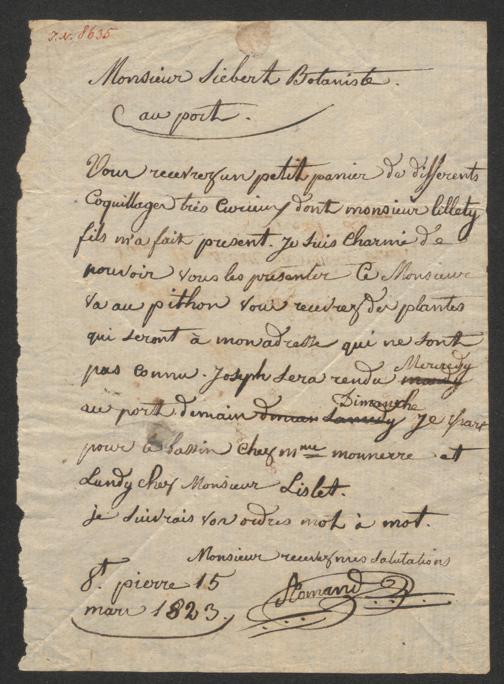 J.N. 8635
Monsieur Siebert Botaniste.
au port.
Vous recevrez un petit panier de differents
Coquillages très Curieux dont monsieur lillety
fils m'a fait present. Je suis charmé de
pouvoir vous les presenter Ce Monsieur
va au pithon vous recevrez des plantes
qui seront à mon adresse qui ne sont
pas connu. Joseph sera rendu Mercredy
au port demain Dimanche Je pars
pour le bassin chez mme monnerre et
Lundy chez Monsieur Lislet.
je suivrais vos ordres mot à mot.
Monsieur recevez mes salutations
St. pierre 15
mars 1823.
Romand